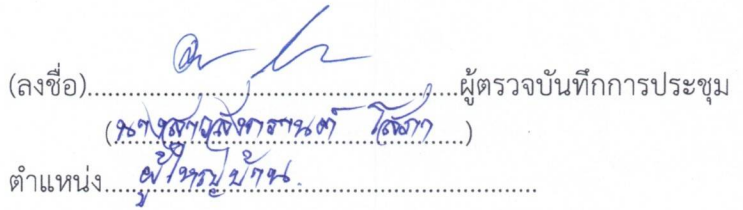 (ลงชื่อ)............................................................ผู้ตรวจบันทึกการประชุม
(นางสาวสงกรานต์ โสภา)
ตำแหน่ง....ผู้ใหญ่บ้าน....